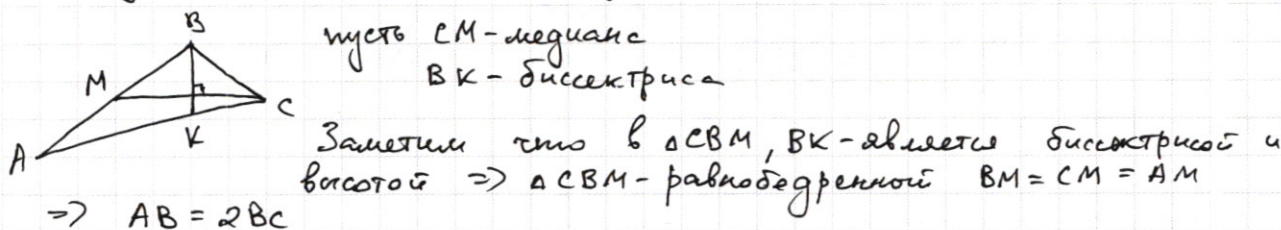 B
пусть CM-медиана
M
BK-биссектриса
C
K
A
Заметим что в △CBM, BK-является биссектрисой и
высотой => △CBM-равнобедренной BM=CM=AM
=> AB=2BC